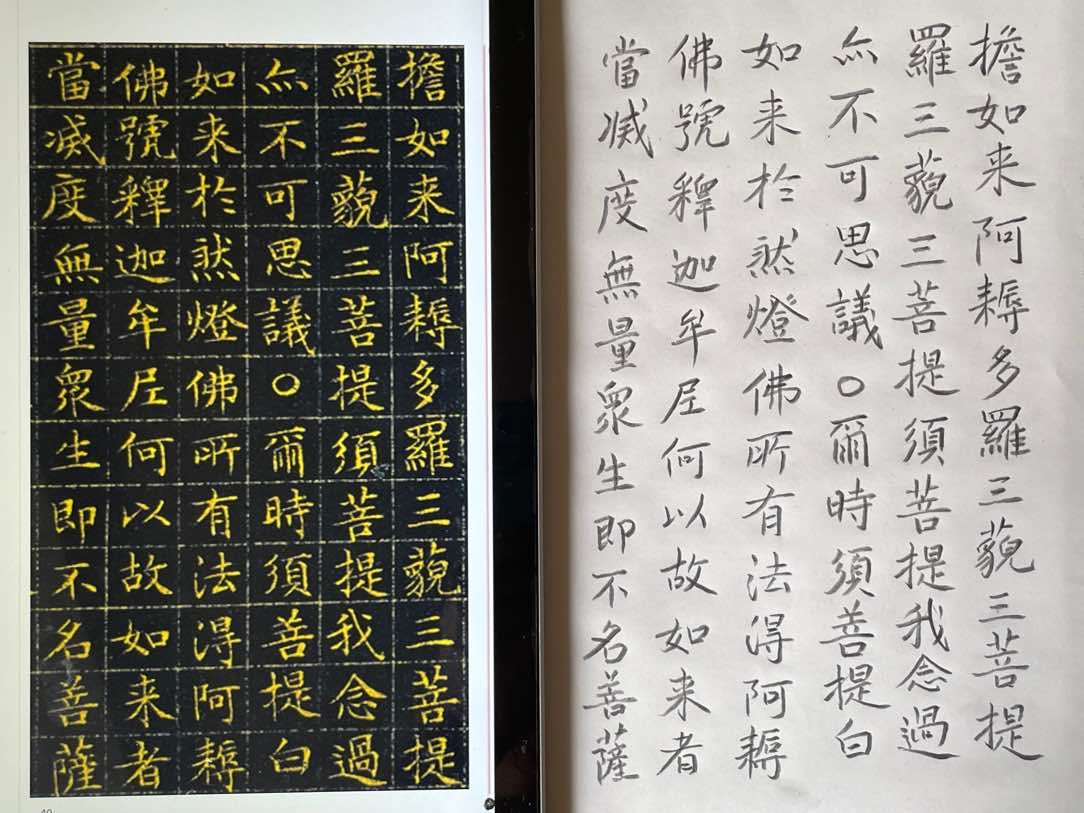 擔如来阿耨多羅三藐三菩提
羅三藐三菩提須菩提我念過
亦不可思議〇爾時須菩提白
如来於然燈佛所有法得阿耨
佛號釋迦牟尼何以故如来者
當滅度無量衆生即不名菩薩
擔如来阿耨多羅三藐三菩提
羅三藐三菩提須菩提我念過
亦不可思議〇爾時須菩提白
如来於然燈佛所有法得阿耨
佛號釋迦牟尼何以故如来者
當滅度無量衆生即不名菩薩